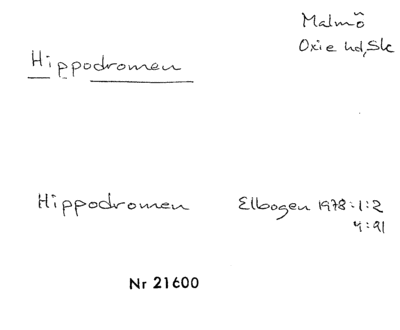 Malmö
Oxie hd, Sk
Hippodromen
Hippodromen Elbogen 1978:1:2
4:91
Nr 21600